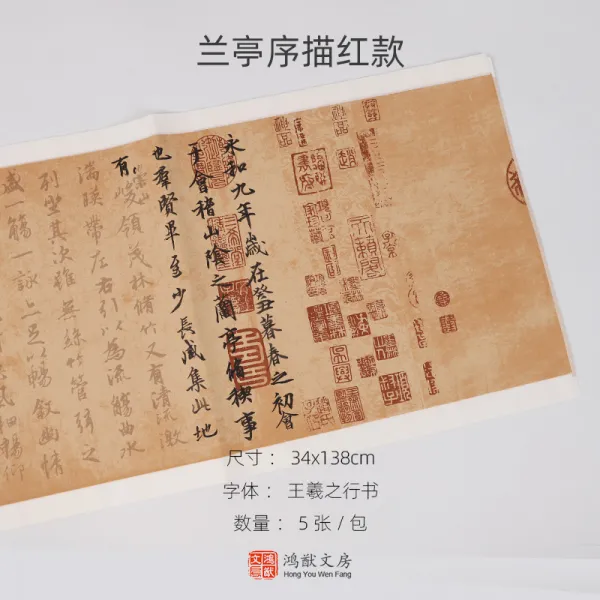 兰亭序描红款
永和九年歲在癸丑暮春之初會
于會稽山陰之蘭亭脩禊事
也羣賢畢至少長咸集此地
有崇山峻領茂林脩竹又有清流激
湍暎帶左右引以為流觴曲水
列坐其次雖無絲竹管弦之
盛一觴一詠亦足以暢敘幽情
尺寸： 34x138cm
字体： 王羲之行书
数量： 5 张 / 包
鸿猷文房
Hong You Wen Fang